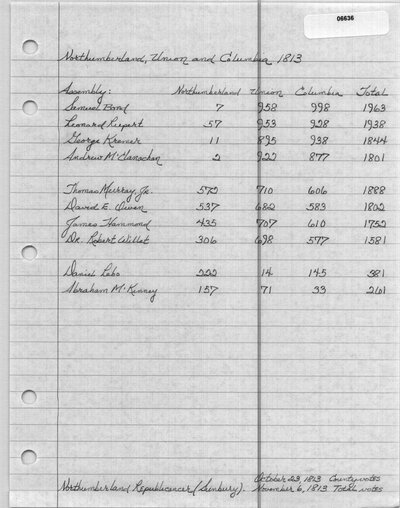 06636
Northumberland, Union and Columbia 1813
Assembly: Northumberland Union Columbia Total
Samuel Bond 7 958 998 1963
Leonard Rupert 57 953 928 1938
George Kremer 11 895 938 1844
Andrew McClanachan 2 922 877 1801
Thomas Murray Jr. 572 710 606 1888
David E. Owen 537 682 583 1802
James Hammond 435 707 610 1752
Dr. Robert Willet 306 698 577 1581
Daniel Lebo 222 14 145 381
Abraham McKinney 157 71 33 261
October 23, 1813 County votes
Northumberland Republicaner (Sunbury). November 6, 1813 Total votes